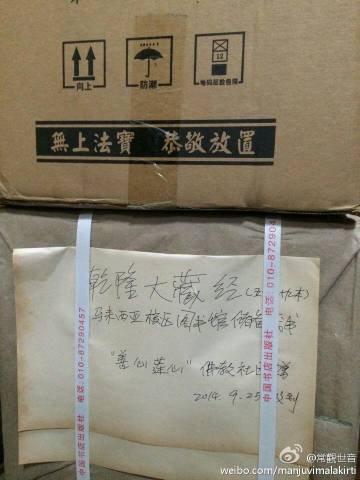 向上
防潮
12
堆码层数极限
無上法寶 恭敬放置
乾隆大藏经
马来西亚校区图书馆储备
"善心莲心" 佛教社
2014.9.25
中国书店出版社 电话:010-87290457
中国书店出版社 电话:010-8729045
@常觀世音
weibo.com/manjuvimalakirti